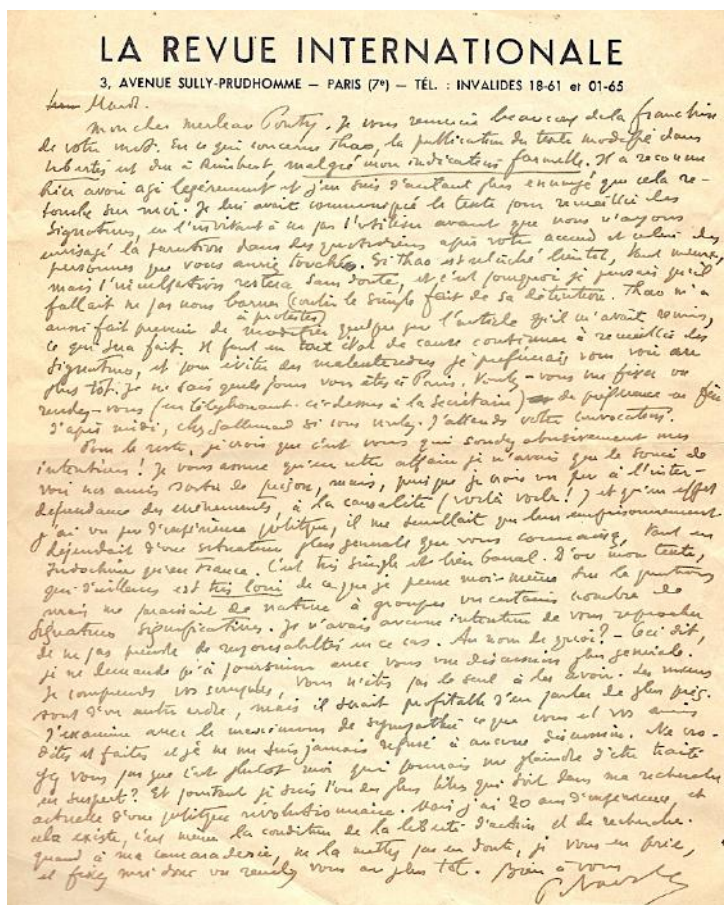 LA REVUE INTERNATIONALE
3, AVENUE SULLY-PRUDHOMME — PARIS (7e) — TÉL. : INVALIDES 18-61 et 01-65
Mardi.
Mon cher Merleau Ponty. Je vous remercie beaucoup de la franchise
de votre mot. En ce qui concerne Thao, la publication du texte modifié dans
Libertés est due à Rimbert, malgré mon indication formelle. Il a reconnu
hier avoir agi légèrement et j'en suis d'autant plus ennuyé que cela re-
tombe sur moi. Je lui avait communiqué le texte pour recueillir des
signatures, en l'invitant à ne pas l'utiliser avant que nous n'ayons
envisagé la parution dans des quotidiens après votre accord et celui des
personnes que vous auriez touchées. Si Thao est relâché bientôt, tant mieux,
mais l'inculpation restera sans doute, et c'est pourquoi je pensais qu'il
fallait ne pas nous borner à protester contre le simple fait de sa détention. Thao m'a
aussi fait prévenir de modifier quelque peu l'article qu'il m'avait remis,
ce qui sera fait. Il faut en tout état de cause continuer à recueillir des
signatures, et pour éviter des malentendus je préférerais vous voir au
plus tôt. Je ne sais quels jours vous êtes à Paris. Voulez-vous me fixer un
rendez-vous (en téléphonant ci-dessus à la secrétaire) de préférence en fin
d'après midi, chez Gallimard si vous voulez. J'attends votre convocation.
Pour le reste, je crois que c'est vous qui sondez abusivement mes
intentions ! Je vous assure qu'en cette affaire je n'avais que le souci de
voir nos amis sortir de prison, mais, puisque je crois un peu à l'inter-
dépendance des événements, à la causalité (voilà voilà !) et qu'en effet
j'ai un peu d'expérience politique, il me semblait que leur emprisonnement
dépendait d'une situation plus générale que vous connaissez, tant en
Indochine qu'en France. C'est très simple et bien banal. D'où mon texte,
qui d'ailleurs est très loin de ce que je pense moi-même sur la question
mais me paraissait de nature à grouper un certain nombre de
signatures significatives. Je n'avais aucune intention de vous reprocher
de ne pas prendre de responsabilités en ce cas. Au nom de quoi ? — Ceci dit,
je ne demande qu'à poursuivre avec vous une discussion plus générale.
Je comprends vos scrupules, vous n'êtes pas le seul à les avoir. Les miens
sont d'un autre ordre, mais il serait profitable d'en parler de plus près.
J'examine avec le maximum de sympathie ce que vous et vos amis
dites et faites et je ne me suis jamais refusé à aucune discussion. Ne cro-
yez vous pas que c'est plutôt moi qui pourrais me plaindre d'être traité
en suspect ? Et pourtant je suis l'un des plus libres qui soit dans ma recherche
actuelle d'une politique révolutionnaire. Mais j'ai 20 ans d'expérience, et
cela existe, c'est même la condition de la liberté d'action et de recherche.
Quant à ma camaraderie, ne la mettez pas en doute, je vous en prie,
et fixez moi donc un rendez vous au plus tôt. Bien à vous
P. Naville